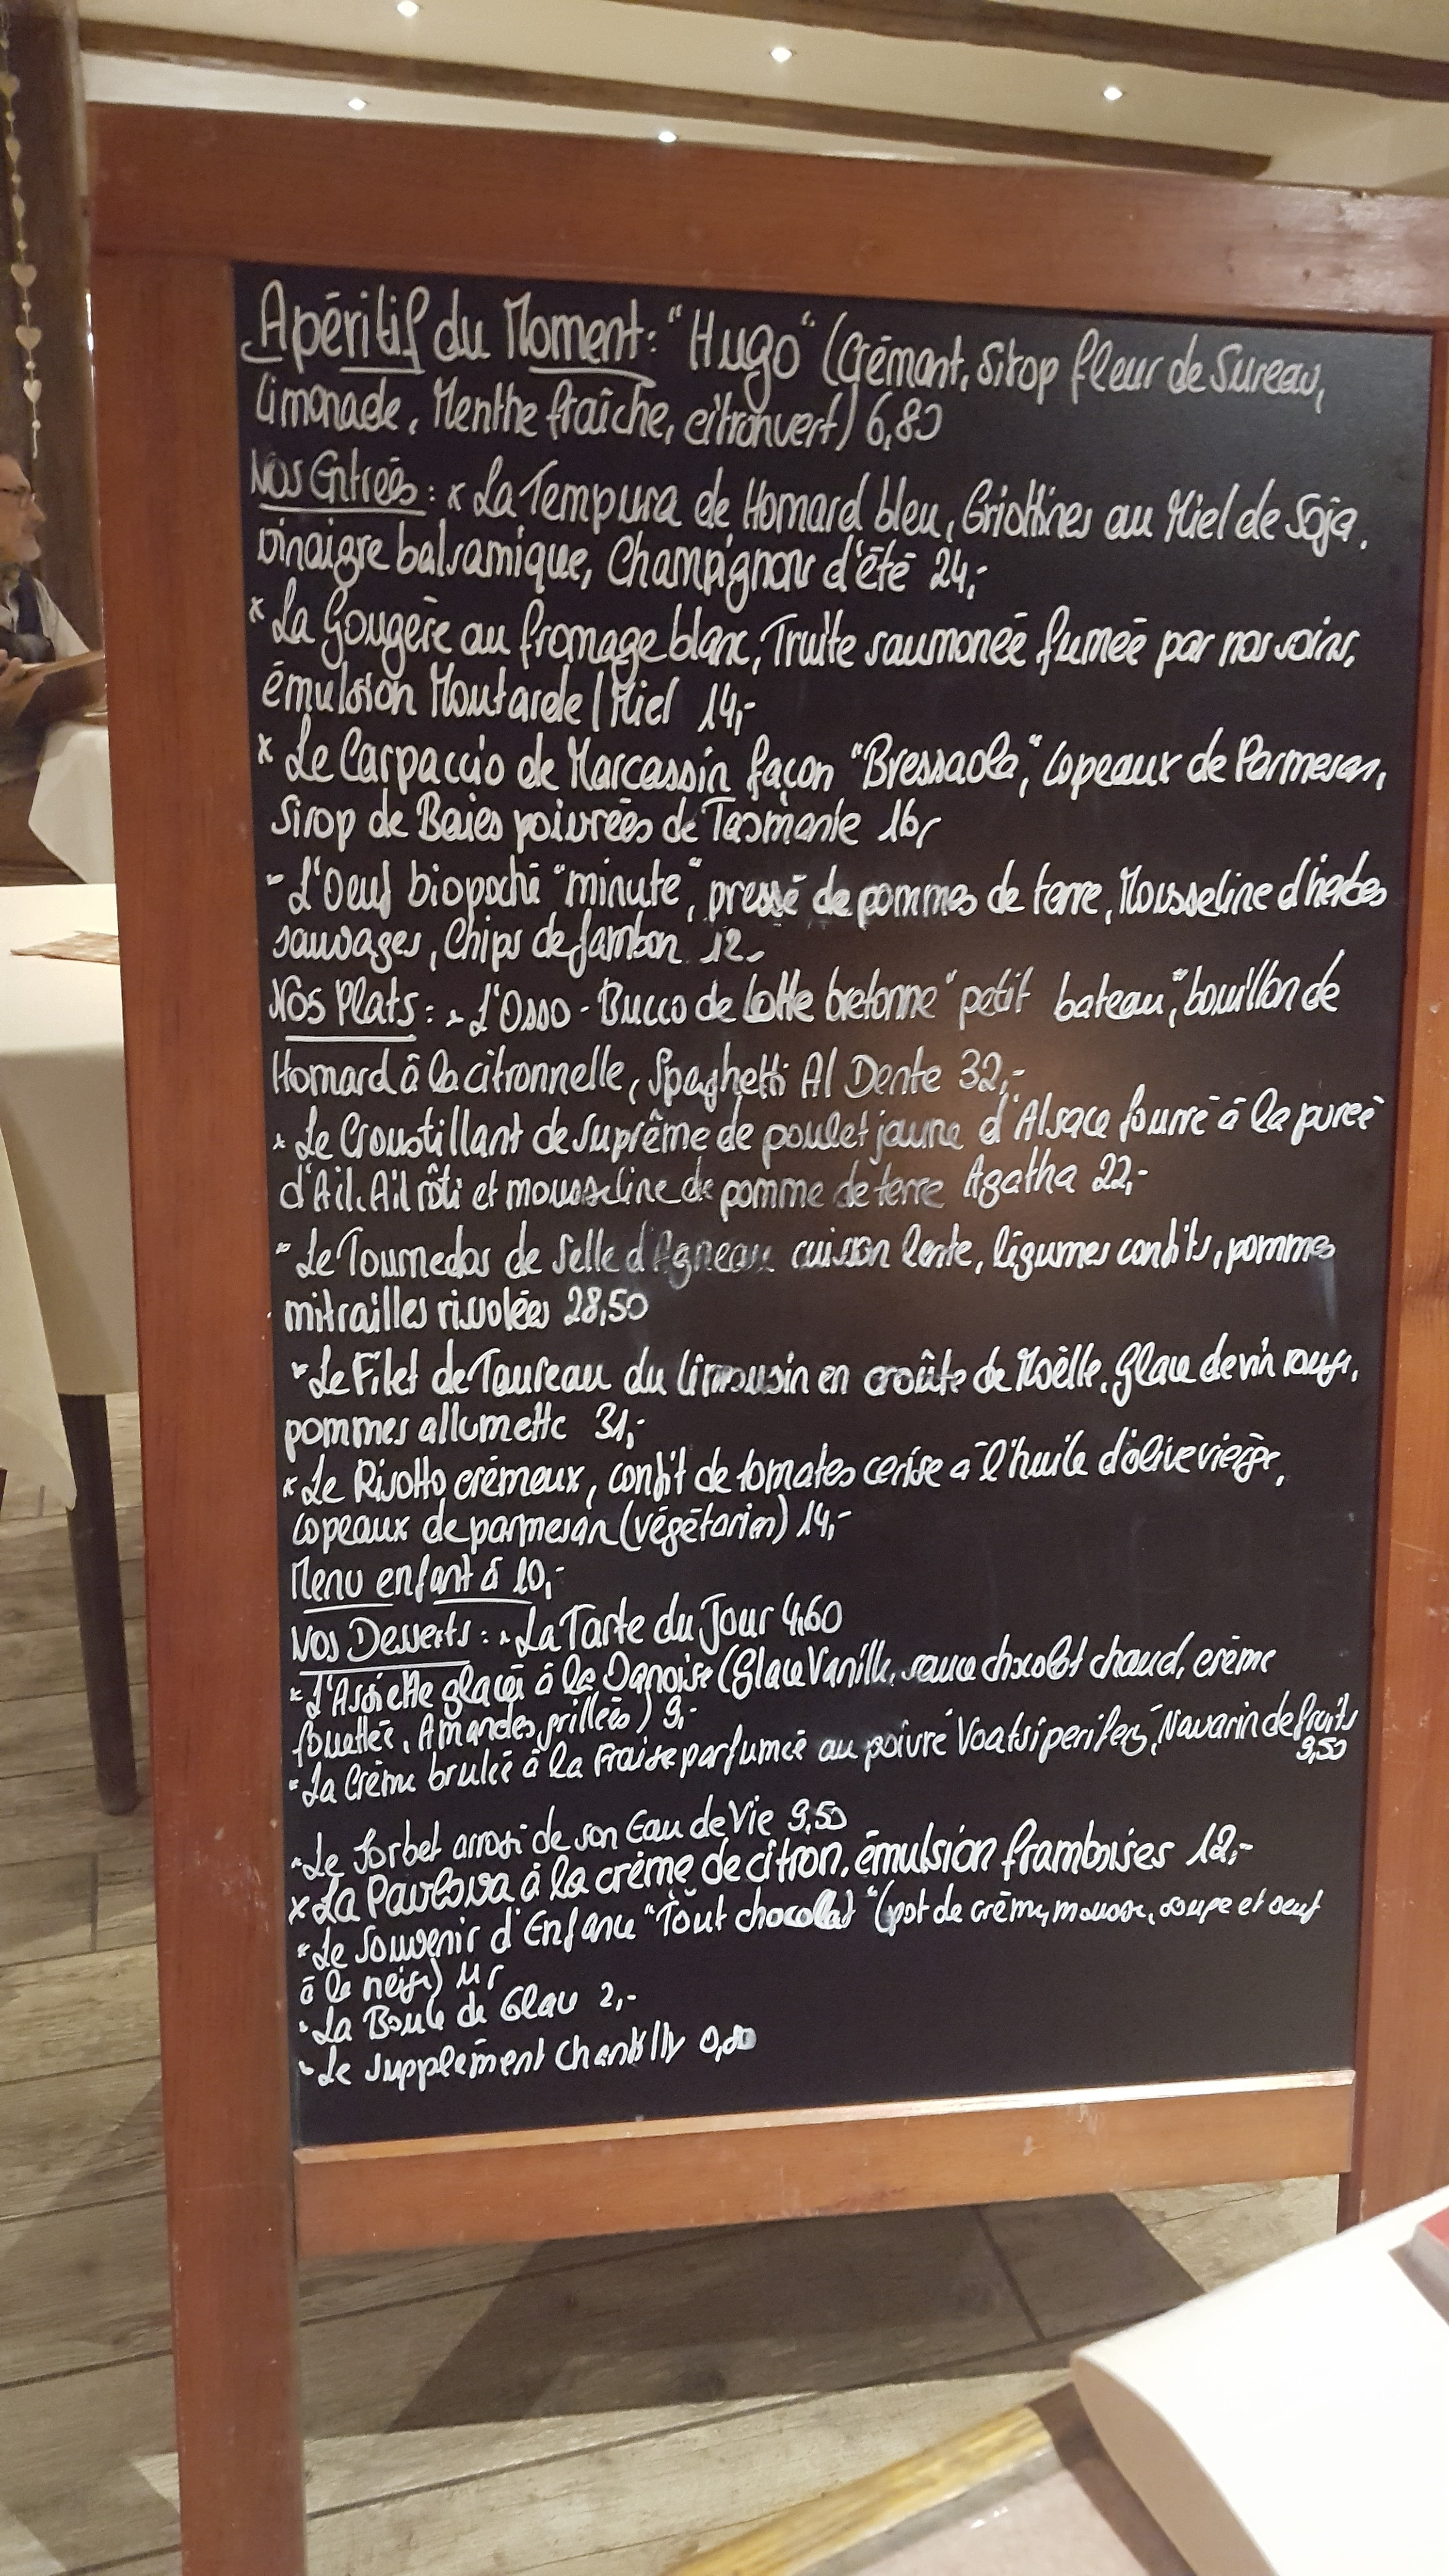 Apéritif du Moment: "Hugo" (Crémant, Sirop fleur de Sureau,
Limonade, Menthe fraîche, citronvert) 6,80
Nos Entrées: * La Tempura de Homard bleu, Griottines au Miel de Soja,
vinaigre balsamique, Champignons d'été 24,-
* La Gougère au fromage blanc, Truite saumonée fumée par nos soins,
émulsion Moutarde/Miel 14,-
* Le Carpaccio de Marcassin façon "Bressaola", Copeaux de Parmesan,
Sirop de Baies poivrées de Tasmanie 16,-
- L'Oeuf bio poché "minute", pressé de pommes de terre, Mousseline d'herbes
sauvages, Chips de Jambon 12,-
Nos Plats: * L'Osso-Bucco de lotte bretonne "petit bateau", bouillon de
Homard à la citronnelle, Spaghetti Al Dente 32,-
* Le Croustillant de suprême de poulet jaune d'Alsace fourré à la purée
d'Ail, Ail rôti et mousseline de pomme de terre Agatha 22,-
* Le Tournedos de Selle d'Agneau cuisson lente, légumes confits, pommes
mitrailles rissolées 28,50
* Le Filet de Taureau du limousin en croûte de Moëlle, glace de vin rouge,
pommes allumette 31,-
* Le Risotto crémeux, confit de tomates cerise à l'huile d'olive vierge,
copeaux de parmesan (végétarien) 14,-
Menu enfant à 10,-
Nos Desserts: * La Tarte du Jour 4,60
* L'Assiette glacée à la Danoise (Glace Vanille, sauce chocolat chaud, crème
fouettée, Amandes grillées) 9,-
* La Crème brulée à la Fraise parfumée au poivre Voatsiperifery, Navarin de fruits
9,50
* Le Sorbet arrosé de son Eau de Vie 9,50
* La Pavlova à la crème de citron, émulsion framboises 12,-
* Le Souvenir d'Enfance "Tout chocolat" (pot de crème, mousse, soupe et oeuf
à la neige) 11,-
* La Boule de Glace 2,-
* Le supplément Chantilly